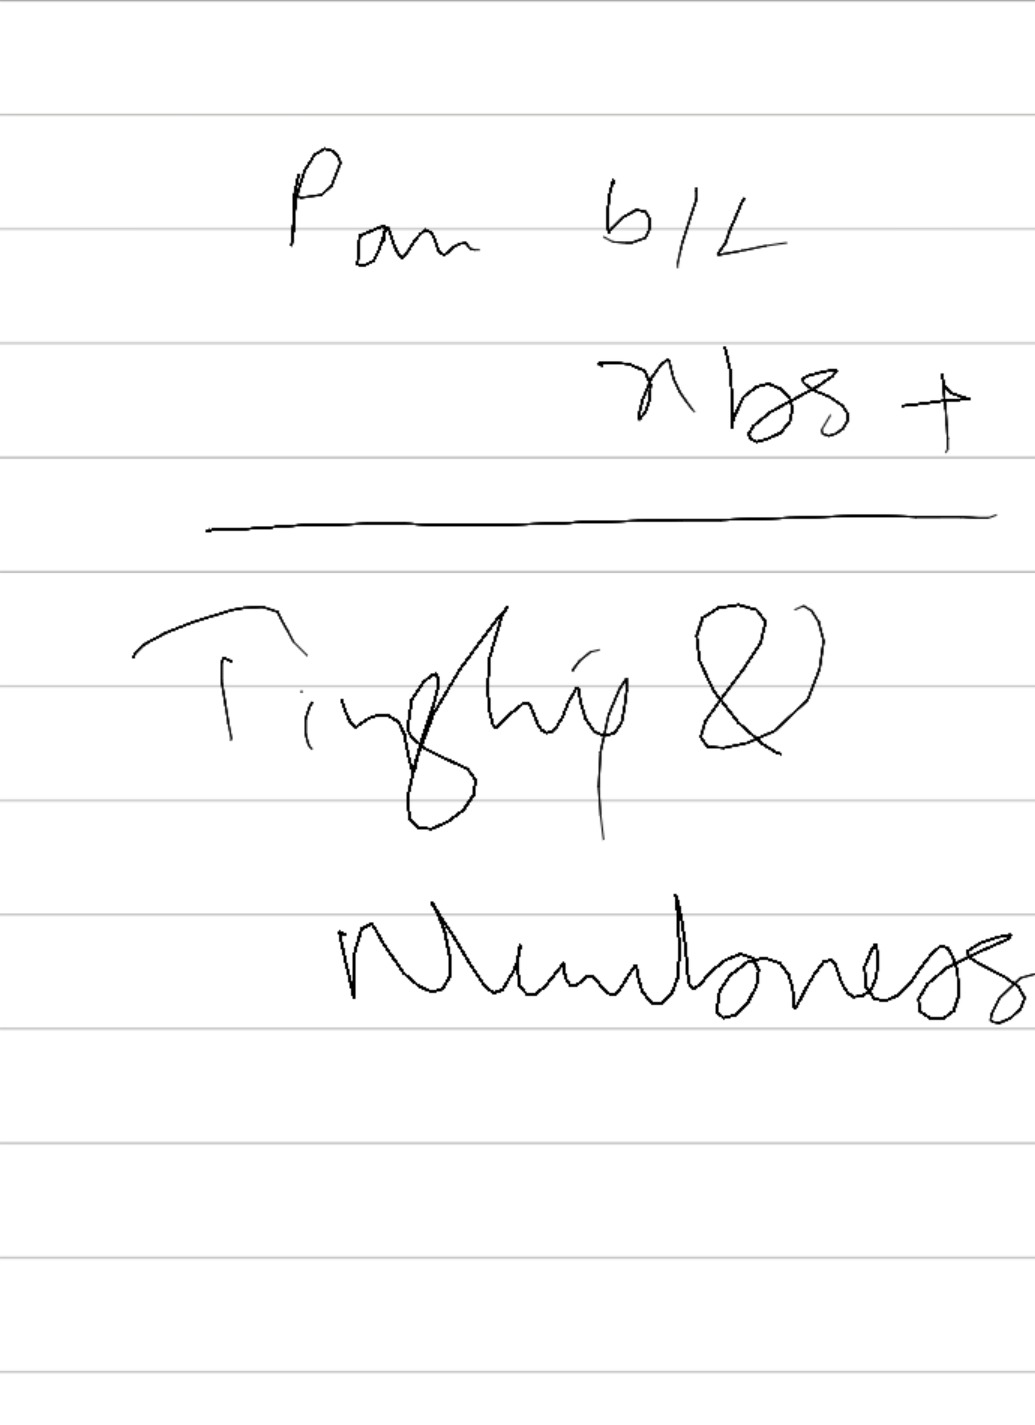 Pain b/L
nbs +
Tingling &
Numbness